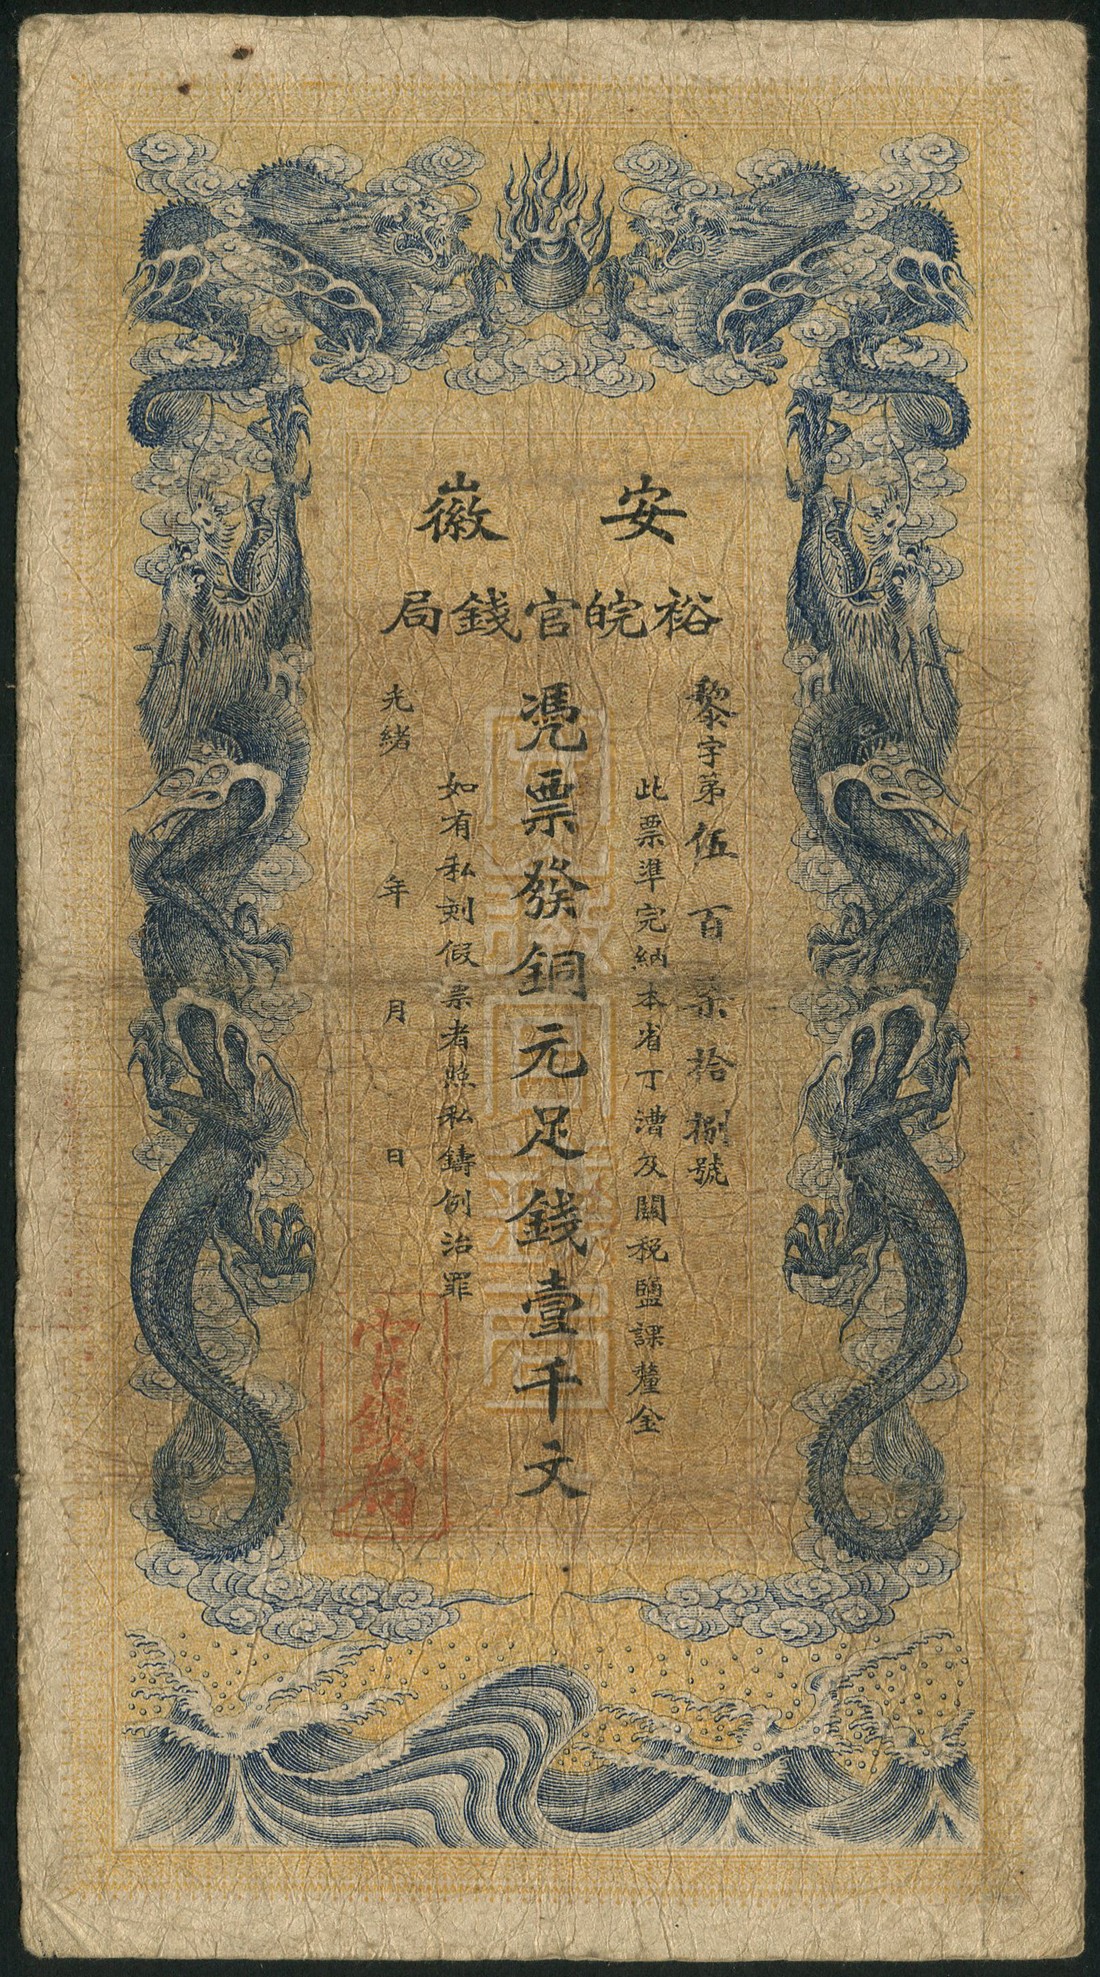 安徽
裕皖官錢局
黎字第伍百柒拾捌號
此票準完納本省丁漕及關税鹽課釐金
憑票發銅元足錢壹千文
如有私刻假票者照私鑄例治罪
光緒 年 月 日
官錢局